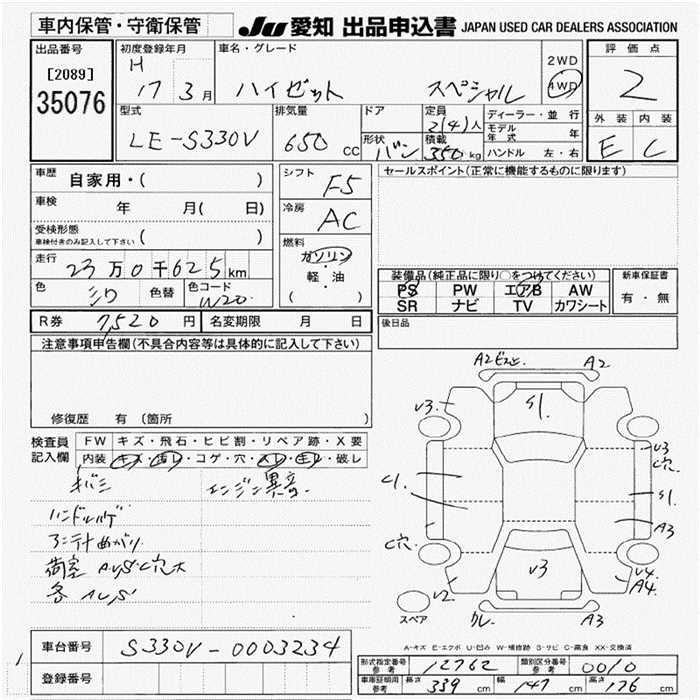 車内保管・守衛保管
JU 愛知 出品申込書 JAPAN USED CAR DEALERS ASSOCIATION
出品番号
[2089]
35076
初度登録年月
H
17 3月
車名・グレード
ハイゼット スペシャル
2WD
4WD
評価点
2
外装 内装
E C
型式
LE-S330V
排気量
650 cc
ドア
形状 バン
定員
2(4)人
積載
350kg
ディーラー・並行
モデル年式 年
ハンドル 左・右
車歴 自家用・( )
車検 年 月( 日)
受検形態
車検付きのみ記入して下さい ( )
走行 23万0千625km
色 シロ 色替 色コード W20
シフト F5
冷房 AC
燃料
ガソリン
・
軽・油
( )
セールスポイント(正常に機能するものに限ります)
装備品(純正品に限り○をつけてください)
PS PW エアB AW
SR ナビ TV カワシート
新車保証書
有・無
後日品
R券 7,520円 名変期限 月 日
注意事項申告欄(不具合内容等は具体的に記入して下さい)
修復歴 有 (箇所
検査員記入欄
FW キズ・飛石・ヒビ割・リペア跡・X要
内装 キズ・汚レ・コゲ・穴・スレ・凹レ・破レ
キバミ エンジン異音.
ハンドルハゲ
アンテナ曲がり
荷室 AUS'C穴大
各 AUS'
A2 A2
V3. S1. V3
C穴.
C1. S1.
C穴. A3
V3 V4
A4.
V2. クレ. A3
スペア
A-キズ E-エクボ U-凹み W-補修跡 S-サビ C-腐食 XX-交換済
車台番号 S330V-0003234
登録番号
形式指定番号 参考 12762 類別区分番号 参考 0010
車庫証明用 参考 長さ 339 cm 幅 147 cm 高さ 176 cm